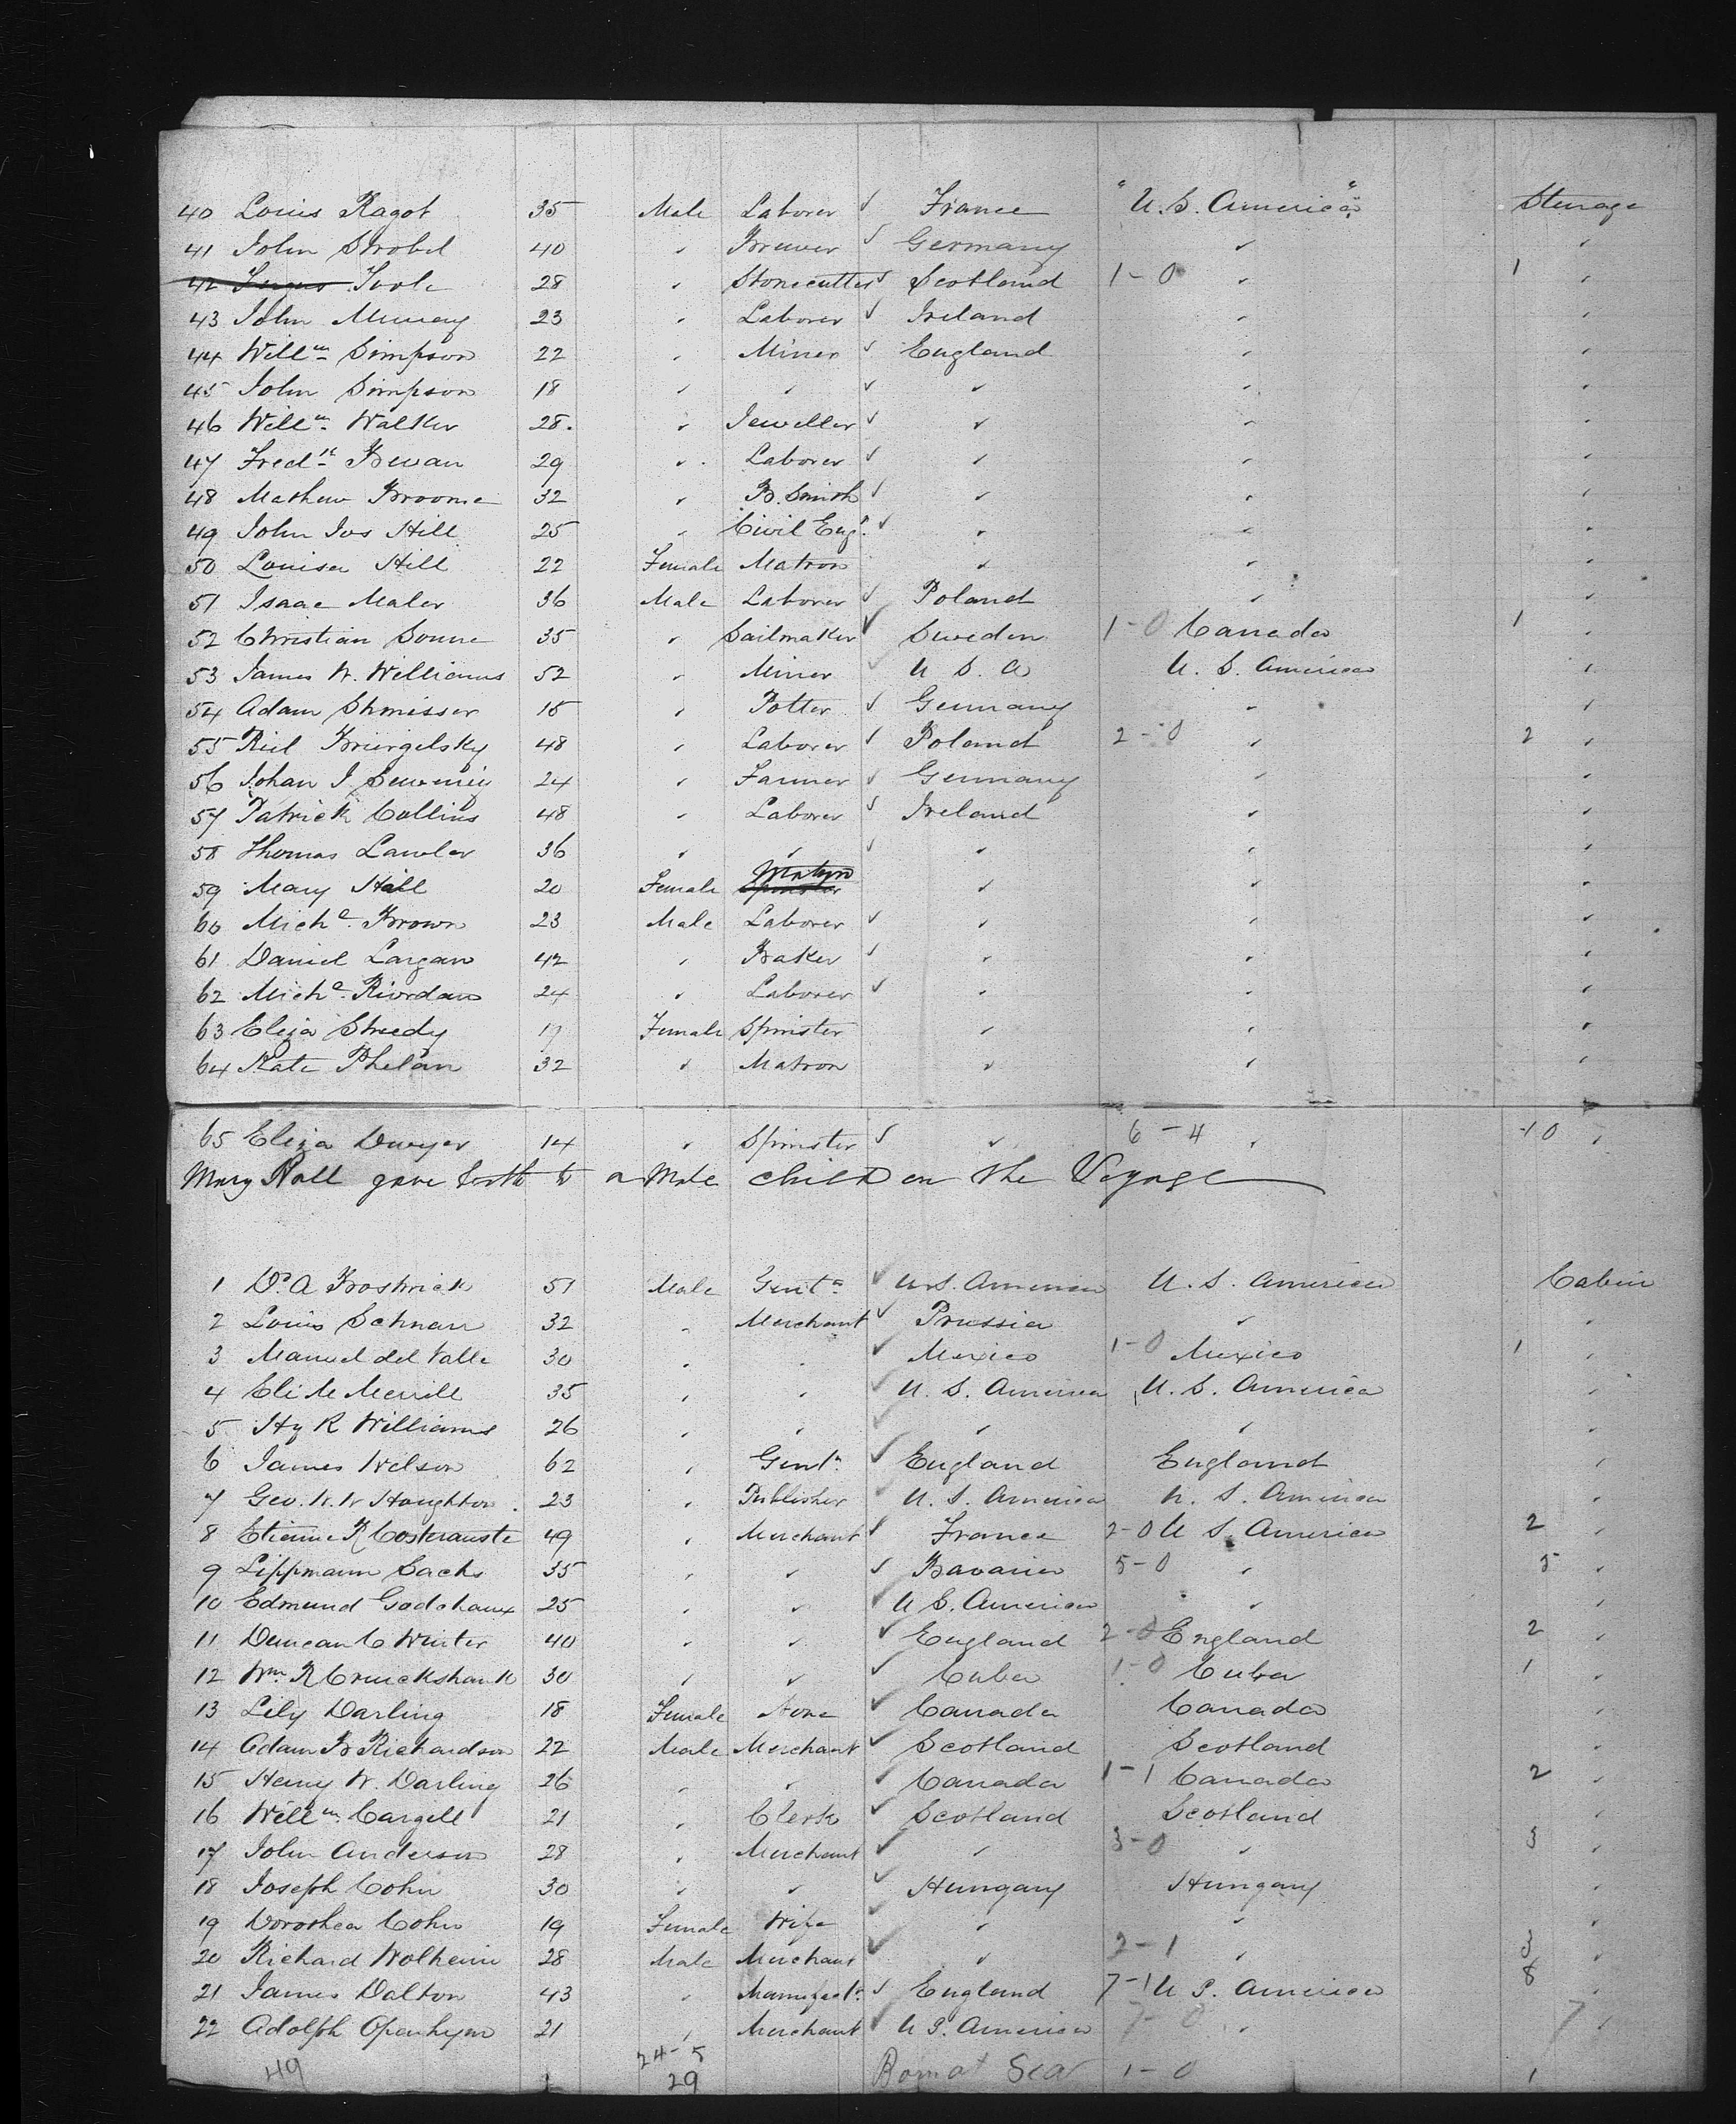 40 Louis Ragot 35 Male Laborer ✓ France "U.S. America" Steerage
41 John Strobel 40 " Brewer ✓ Germany " "
42 Toole 28 " Stonecutter ✓ Scotland 1-0 " 1 "
43 John Murray 23 " Laborer ✓ Ireland " "
44 Willm Simpson 22 " Miner ✓ England " "
45 John Simpson 18 " " ✓ " " "
46 Willm Walker 28. " Jeweller ✓ " " "
47 Fredk Bevan 29 " Laborer ✓ " " "
48 Mathew Broome 32 " B. Smith ✓ " " "
49 John Jos Hill 25 " Civil Engr. ✓ " " "
50 Louisa Hill 22 Female Matron " " "
51 Isaac Maler 36 Male Laborer ✓ Poland " "
52 Christian Sonne 35 " Sailmaker ✓ Sweden 1-0 Canada 1 "
53 James W. Williams 52 " Miner ✓ U S. A U. S. America "
54 Adam Shmisser 15 " Potter ✓ Germany " "
55 48 " Laborer ✓ Poland 2-0 " 2 "
56 Johan J 24 " Farmer ✓ Germany " "
57 Patrick Collins 48 " Laborer ✓ Ireland " "
58 Thomas Lawler 36 " " ✓ " " "
59 Mary Hall 20 Female Spinster Matron " " "
60 Michl. Brown 23 Male Laborer ✓ " " "
61 Daniel Largan 42 " Baker ✓ " " "
62 Michl. Riordan 24 " Laborer ✓ " " "
63 Eliza Sheedy 17 Female Spinster " " "
64 Kate Phelan 32 " Matron " " "
65 Eliza Dwyer 14 " Spinster ✓ " 6-4 " 10 "
Mary Hall gave birth to a Male child on the Voyage
1 Dr. A Bostwick 51 Male Gentn ✓ U.S. America U. S. America Cabin
2 Louis Schnarr 32 " Merchant ✓ Prussia " "
3 Manuel del Valle 30 " " ✓ Mexico 1-0 Mexico 1 "
4 Eli M Merrill 35 " " ✓ U. S. America U. S. America "
5 Hy R Williams 26 " " ✓ " " "
6 James Nelson 62 " Gentn. ✓ England England "
7 Geo. W. W Houghton. 23 " Publisher ✓ U. S. America U. S. America "
8 Etienne R 49 " Merchant ✓ France 2-0 U S. America 2 "
9 Lippmann Sachs 35 " " ✓ Bavaria 5-0 " 5 "
10 Edmund Godchaux 25 " " ✓ U S. America " "
11 Duncan C Winter 40 " " ✓ England 2-0 England 2 "
12 Wm. R Cruckshank 30 " " ✓ Cuba 1-0 Cuba 1 "
13 Lily Darling 18 Female None ✓ Canada Canada "
14 Adam B Richardson 22 Male Merchant ✓ Scotland Scotland "
15 Henry W. Darling 26 " " ✓ Canada 1-1 Canada 2 "
16 Willm. Cargill 21 " Clerk ✓ Scotland Scotland "
17 John Anderson 28 " Merchant ✓ " 3-0 " 3 "
18 Joseph Cohn 30 " " ✓ Hungary Hungary "
19 Dorothea Cohn 19 Female Wife ✓ " " "
20 Richard Wolheim 28 Male Merchant ✓ " 2-1 " 3 "
21 James Dalton 43 " Manufactr. ✓ England 7-1 U S. America 8 "
22 Adolph Openhym 21 " Merchant ✓ U S. America 7-0 " 7 "
49 24-5 Born at Sea 1-0 1
29